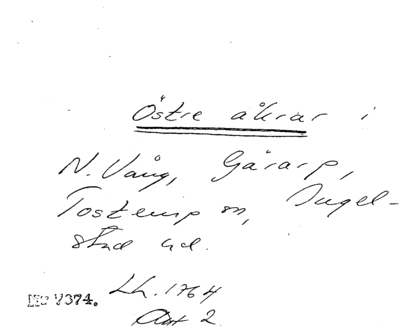 Östre åkrar i
N. Vång, Gårarp,
Tosterup sn, Ingel-
stad hd.
Lh. 1764
Akt 2.
374.